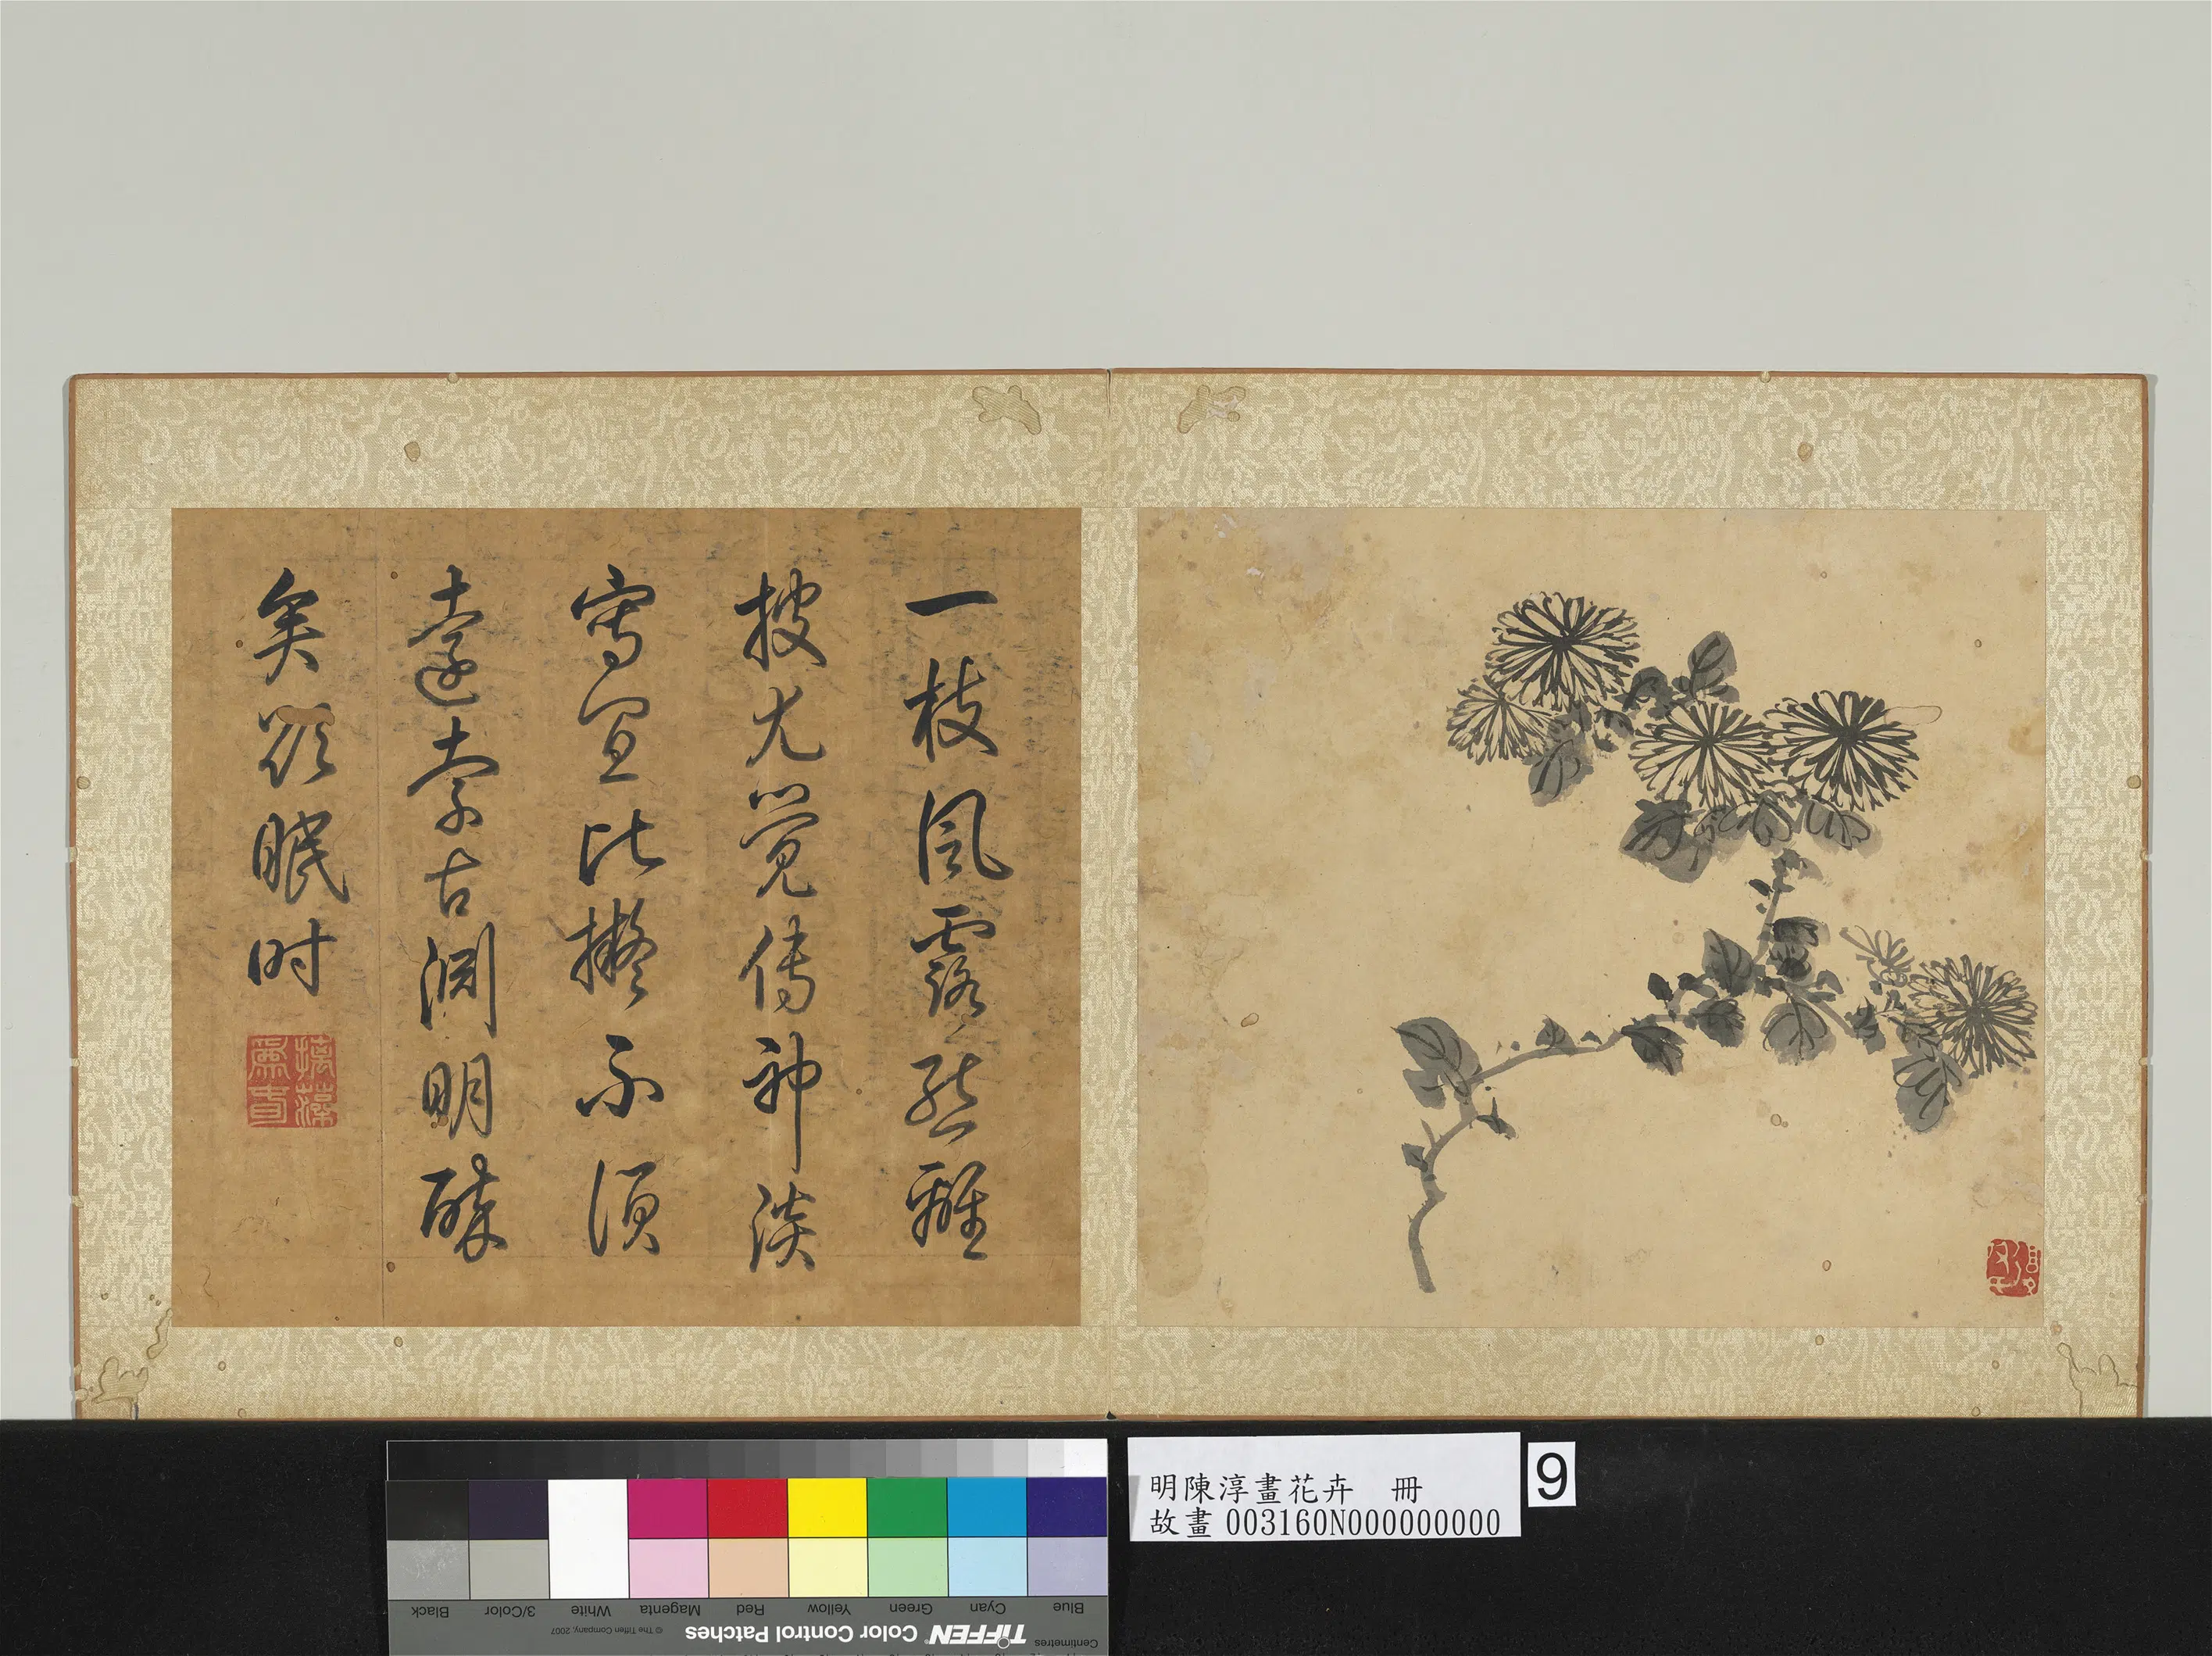 一枝風露態離
披尤覺傳神淡
寫宜比擬不須
遠索古淵明醉
矣欲眠時
摛藻為春
明陳淳畫花卉 冊
故畫003160N000000000
9
Blue Cyan Green Yellow Red Magenta White 3/Color Black
Centimetres TIFFEN Color Control Patches © The Tiffen Company, 2007